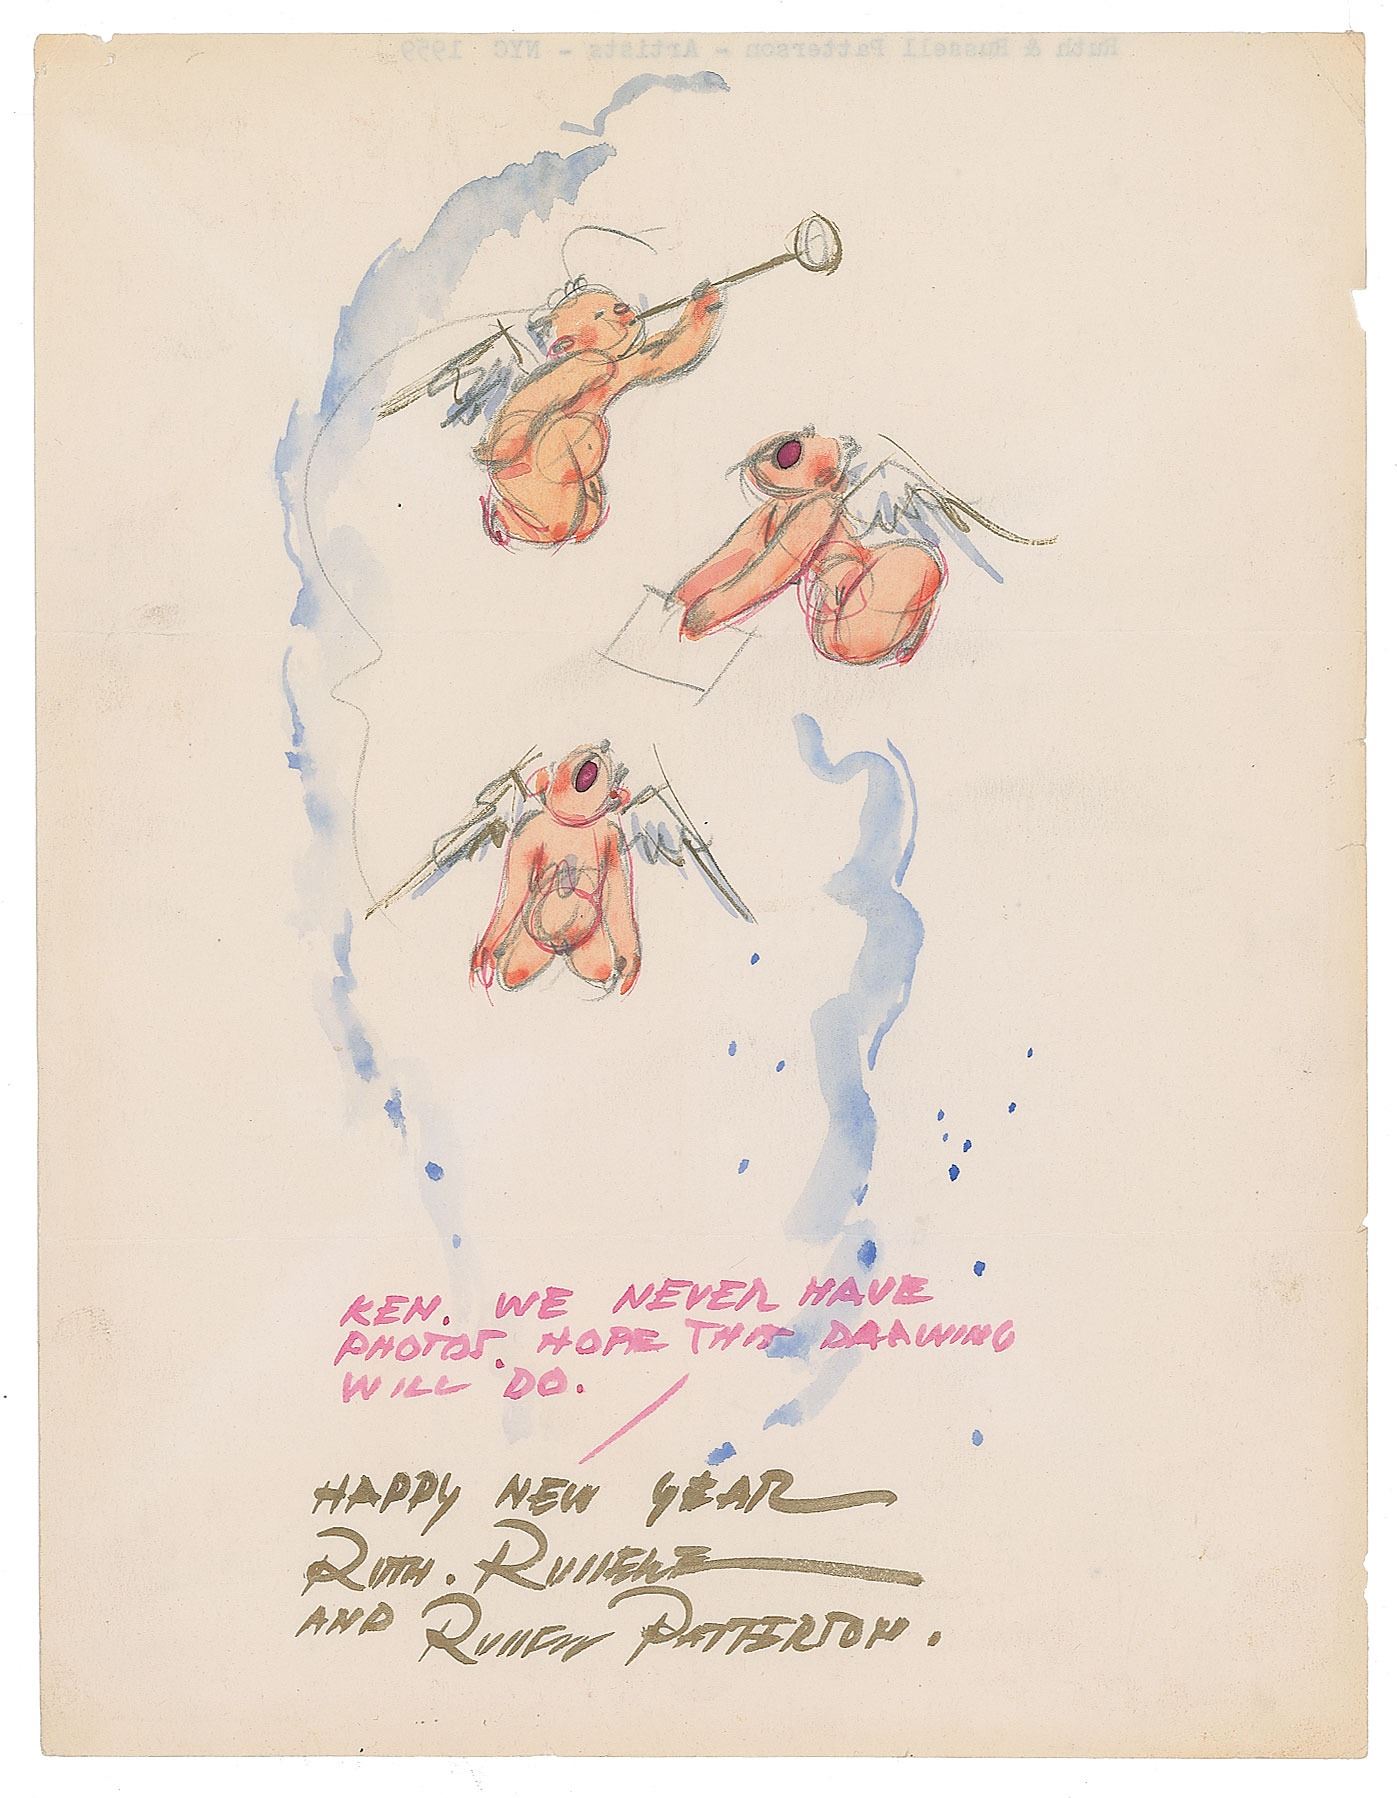 Ruth & Russell Patterson - Artists - NYC 1959
KEN. WE NEVER HAVE
PHOTOS. HOPE THIS DRAWING
WILL DO.
HAPPY NEW YEAR
RUTH. RUSSELLE
AND RUSSELL PATTERSON.